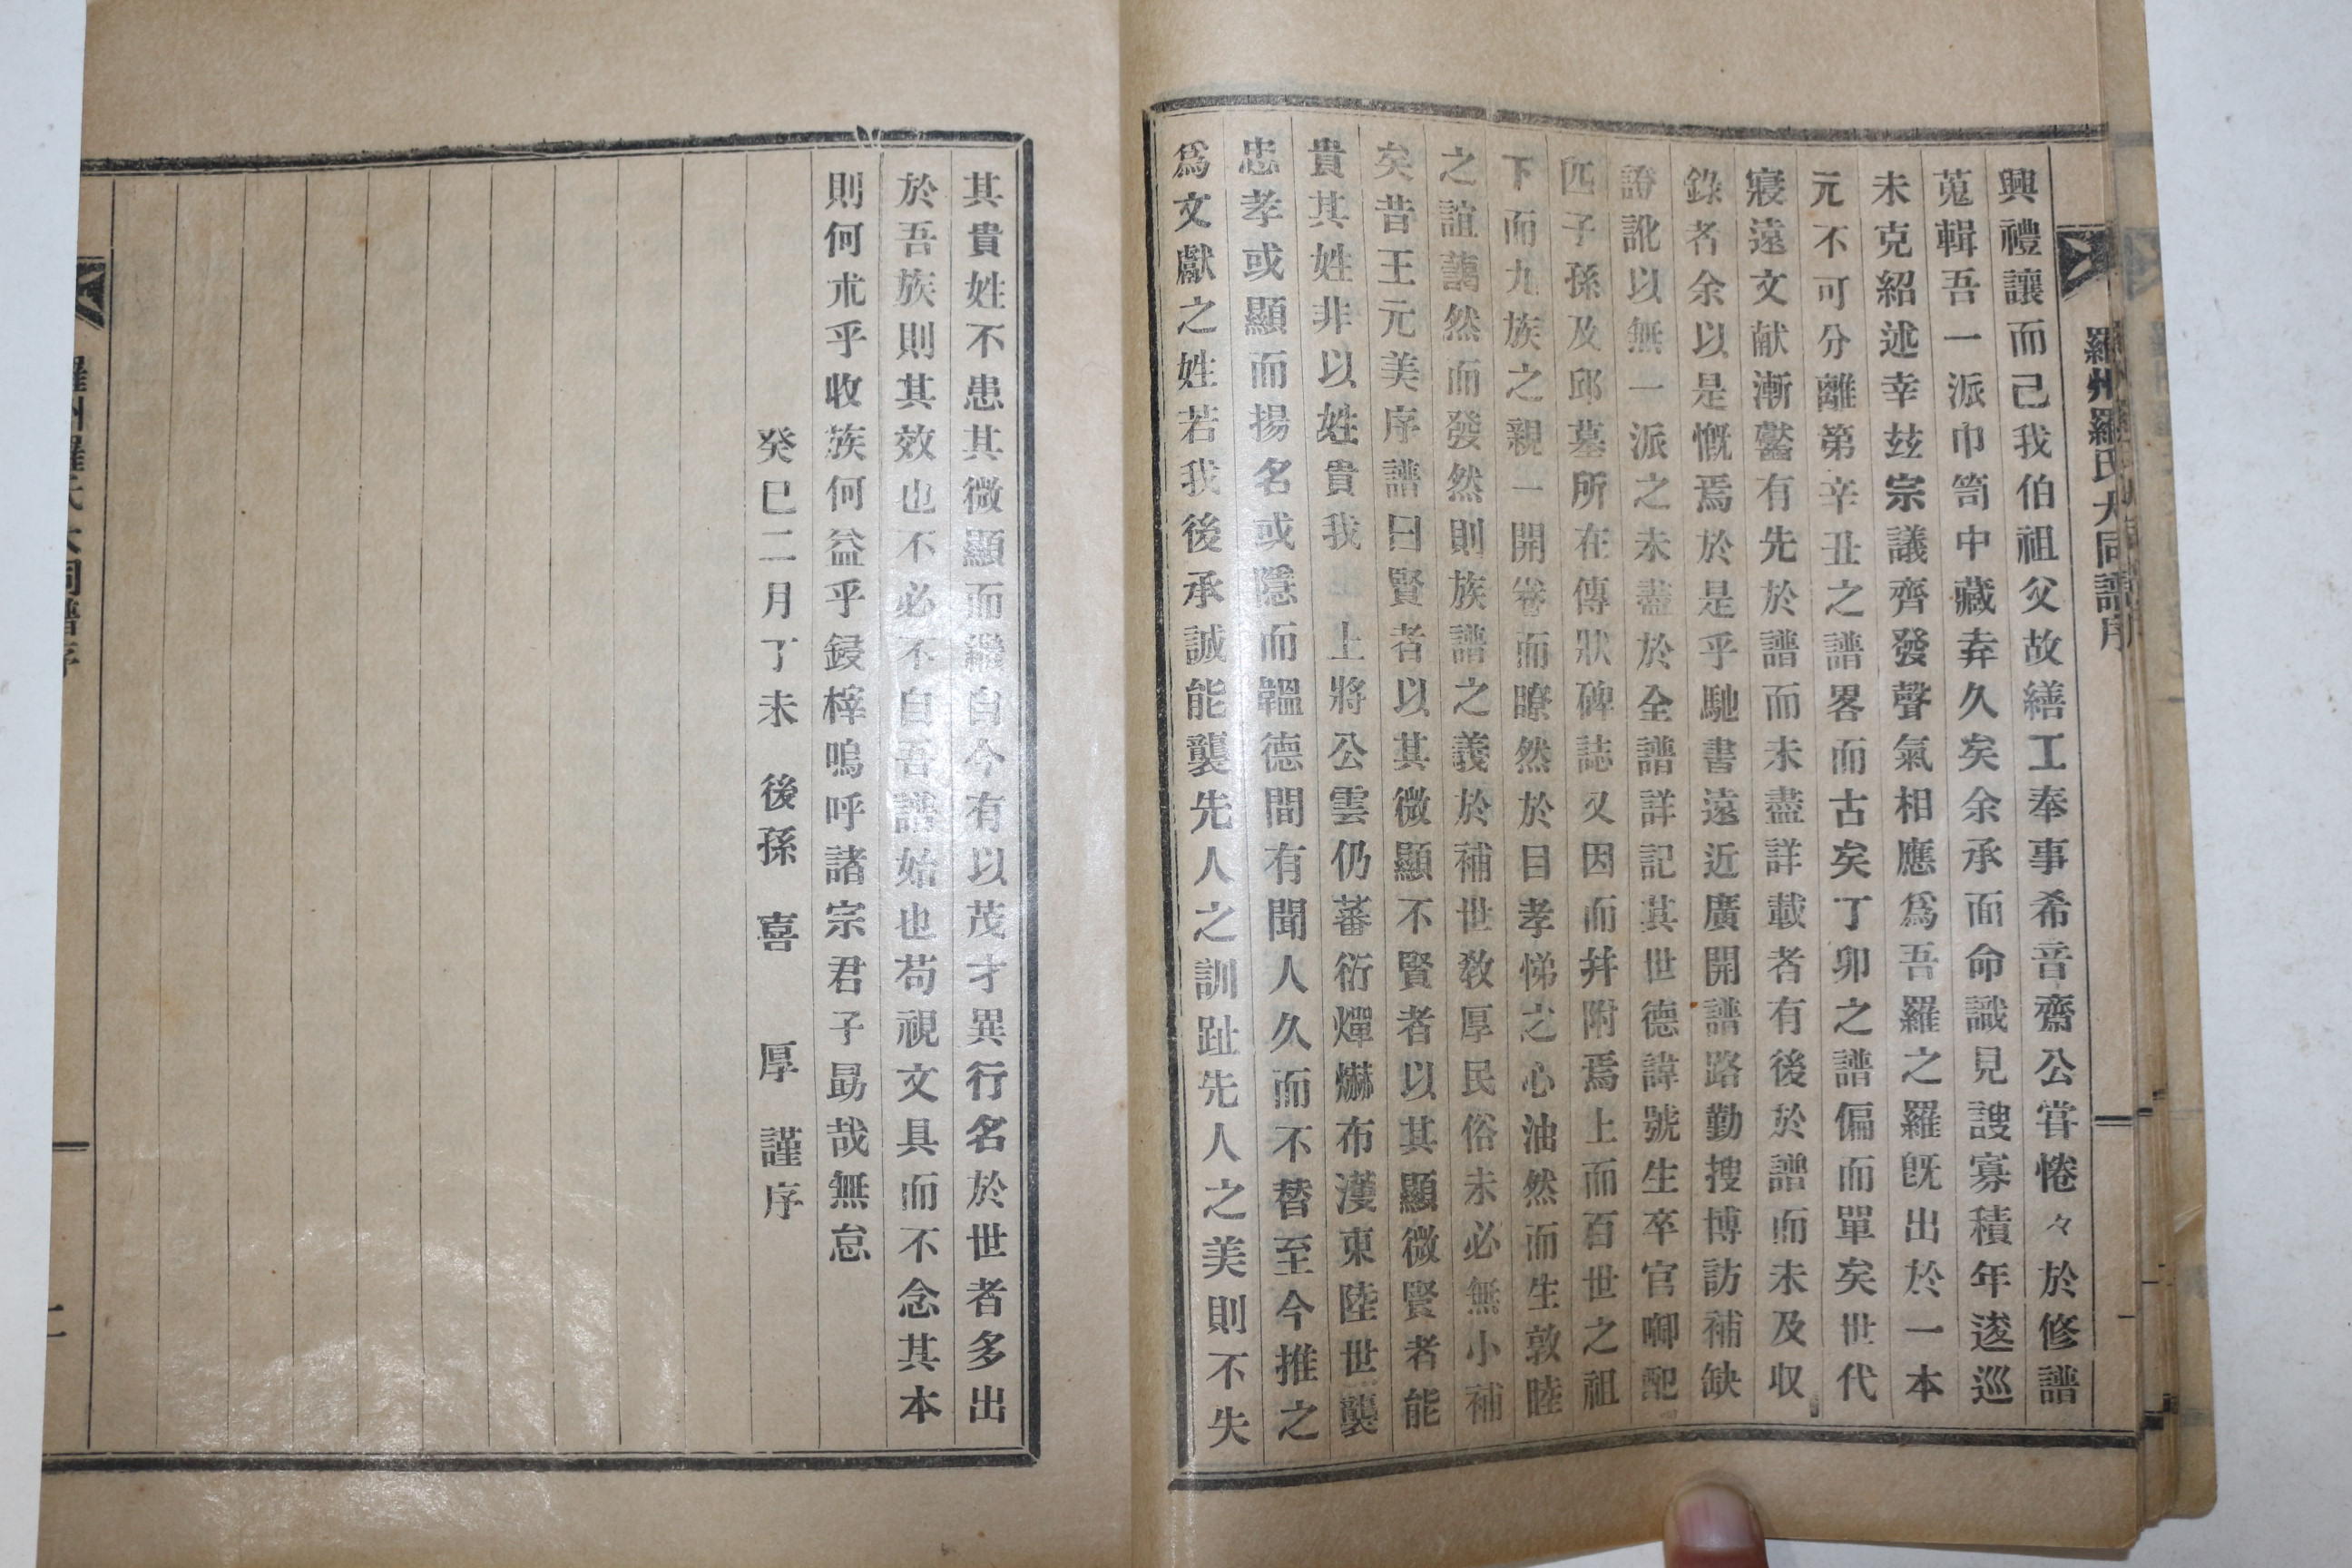 羅州羅氏大同譜序
興禮讓而己我伯祖父故繕工奉事希音齋公甞惓々於修譜
蒐輯吾一派巾笥中藏弆久矣余承面命識見謏寡積年逡巡
未克紹述幸玆宗議齊發聲氣相應爲吾羅之羅旣出於一本
元不可分離第辛丑之譜畧而古矣丁卯之譜偏而單矣世代
寢遠文献漸鑿有先於譜而未盡詳載者有後於譜而未及収
錄者余以是慨焉於是乎馳書遠近廣開譜路勤搜博訪補缺
證訛以無一派之未盡於全譜詳記其世德諱號生卒官啣配
匹子孫及邱墓所在傳狀碑誌又因而幷附焉上而百世之祖
下而九族之親一開卷而瞭然於目孝悌之心油然而生敦睦
之誼藹然而發然則族譜之義於補世敎厚民俗未必無小補
矣昔王元美序譜曰賢者以其微顯不賢者以其顯微賢者能
貴其姓非以姓貴我 上將公雲仍蕃衍燀爀布濩東陸世襲
忠孝或顯而揚名或隱而韞德間有聞人久而不替至今推之
爲文獻之姓若我後承誠能襲先人之訓趾先人之美則不失
其貴姓不患其微顯而繼自今有以茂才異行名於世者多出
於吾族則其效也不必不自吾譜始也苟視文具而不念其本
則何朮乎收族何益乎鋟梓嗚呼諸宗君子勗哉無怠
癸巳二月丁未 後孫 喜 厚 謹序